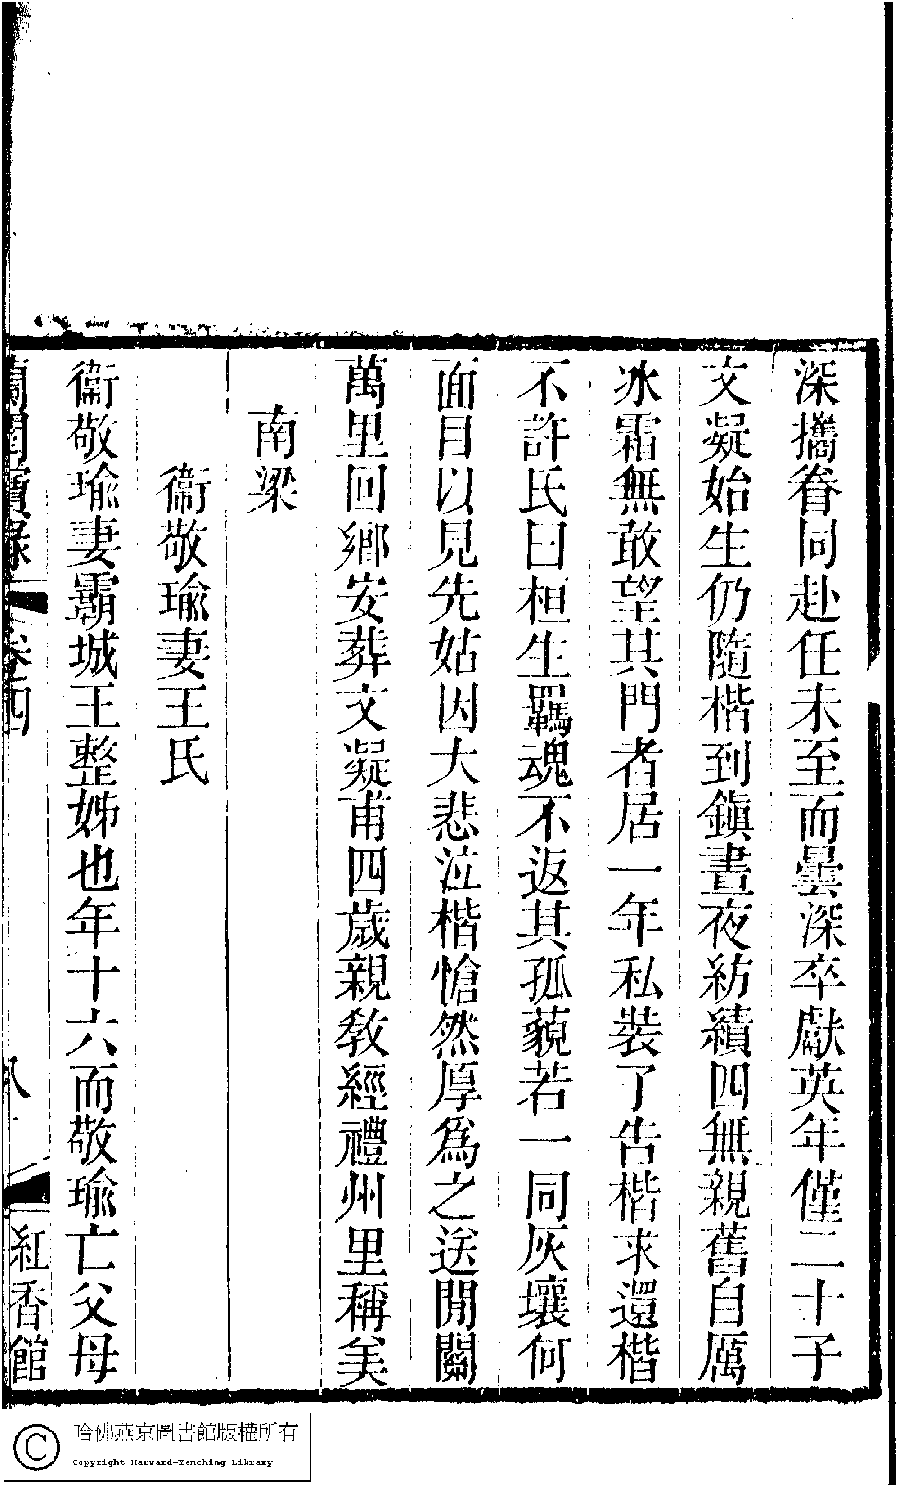 深攜眷同赴任未至而曇深卒獻英年僅二十子
文凝始生仍隨楷到鎮晝夜紡績四無親舊自厲
冰霜無敢望其門者居一年私裝了告楷求還楷
不許氏曰桓生羈魂不返其孤藐若一同灰壤何
面目以見先姑因大悲泣楷愴然厚為之送閒關
萬里回鄉安葬文凝甫四歲親教經禮州里稱美
南梁
衞敬瑜妻王氏
衞敬瑜妻霸城王整姊也年十六而敬瑜亡父母
蘭閨寶錄 卷四 紅香館
哈佛燕京圖書館版權所有
Copyright Harvard-Yenching Library